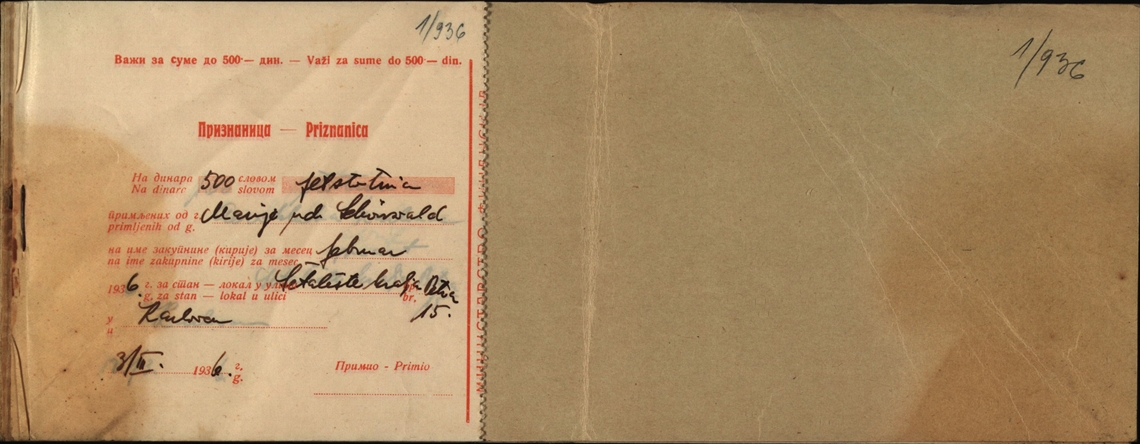 1/936
Важи за суме до 500·— дин. — Važi za sume do 500 — din.
Признаница — Priznanica
На динара 500 словом
Na dinare slovom petstotina
примљених од г. Marije ud. Schönwald
primljenih od g.
на име закупнине (кирије) за месец februar
na ime zakupnine (kirije) za mesec
1936 г. за стан — локал у улици Šetalište kralja Petra
g. za stan — lokal u ulici br. 15.
у Karlovcu
u
3/II. 1936. г.
g.
Примао - Primio
1/936